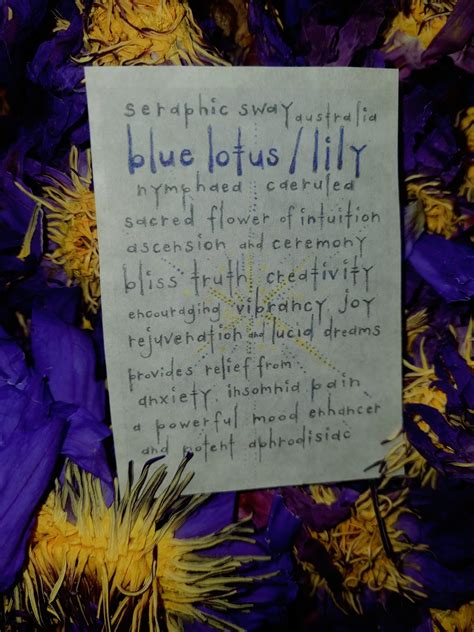 seraphic sway australia
blue lotus / lily
nymphaea caerulea
sacred flower of intuition
ascension and ceremony
bliss truth creativity
encouraging vibrancy joy
rejuvenation and lucid dreams
provides relief from
anxiety insomnia pain
a powerful mood enhancer
and potent aphrodisiac